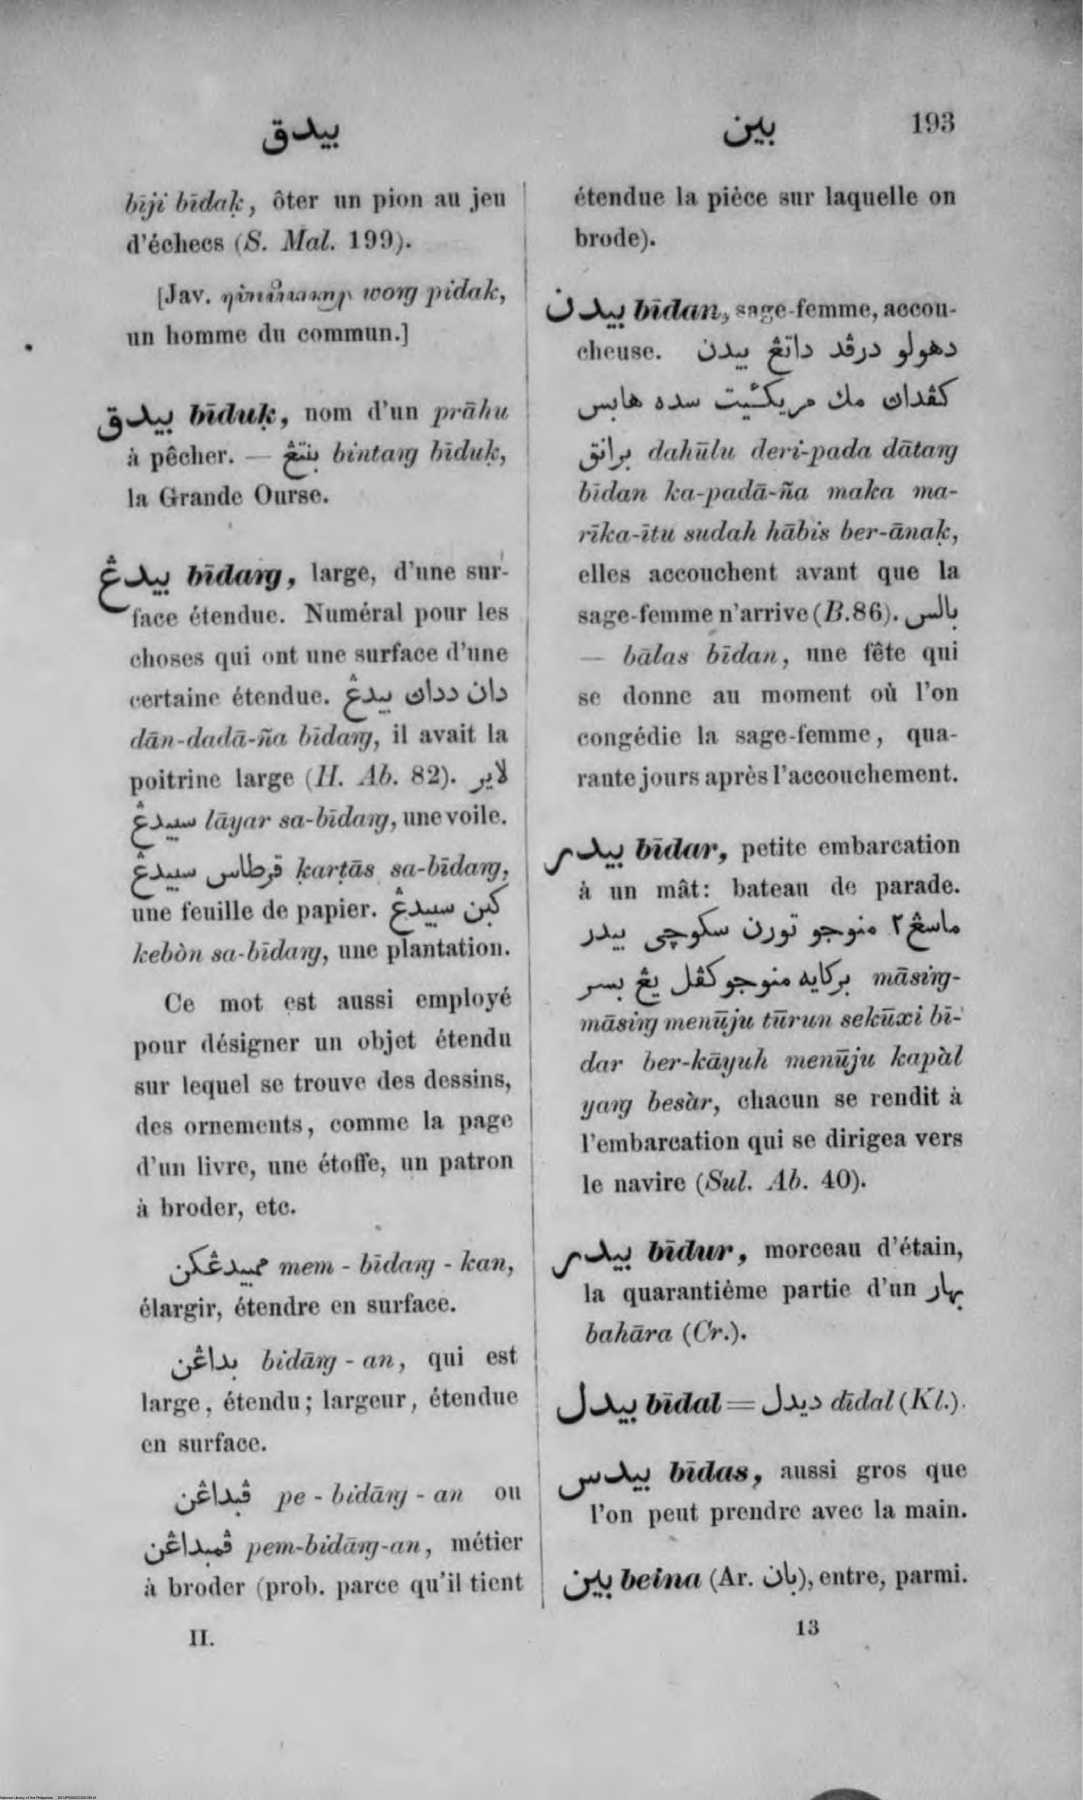 بيدق
بين 193
bīji bīdaḳ, ôter un pion au jeu
d'échecs (S. Mal. 199).
[Jav. worg pidak,
un homme du commun.]
بيدق bīduḳ, nom d'un prāhu
à pêcher. — بنتڠ bintarg bīduḳ,
la Grande Ourse.
بيدڠ bīdarg, large, d'une sur-
face étendue. Numéral pour les
choses qui ont une surface d'une
certaine étendue. دان دداك بيدڠ
dān-dadā-ña bīdarg, il avait la
poitrine large (H. Ab. 82). لاير
سبيدڠ lāyar sa-bīdarg, une voile.
قرطاس سبيدڠ ḳarṭās sa-bīdarg,
une feuille de papier. كبن سبيدڠ
kebòn sa-bīdarg, une plantation.
Ce mot est aussi employé
pour désigner un objet étendu
sur lequel se trouve des dessins,
des ornements, comme la page
d'un livre, une étoffe, un patron
à broder, etc.
ممبيدڠكن mem - bīdarg - kan,
élargir, étendre en surface.
بداڠن bidārg - an, qui est
large, étendu; largeur, étendue
en surface.
ڤبداڠن pe - bidārg - an ou
ڤمبداڠن pem-bidārg-an, métier
à broder (prob. parce qu'il tient
II.
étendue la pièce sur laquelle on
brode).
بيدن bīdan, sage-femme, accou-
cheuse. دهولو درڤد داتڠ بيدن
كڤدان مك مريكئيت سده هابس
برانق dahūlu deri-pada dātarg
bīdan ka-padā-ña maka ma-
rīka-ītu sudah hābis ber-ānaḳ,
elles accouchent avant que la
sage-femme n'arrive (B. 86). بالس
— bālas bīdan, une fête qui
se donne au moment où l'on
congédie la sage-femme, qua-
rante jours après l'accouchement.
بيدر bīdar, petite embarcation
à un mât: bateau de parade.
ماسڠ٢ منوجو تورن سكوچي بيدر
بركايه منوجو كڤل يڠ بسر māsirg-
māsirg menūju tūrun sekūxi bī-
dar ber-kāyuh menūju kapàl
yarg besàr, chacun se rendit à
l'embarcation qui se dirigea vers
le navire (Sul. Ab. 40).
بيدر bīdur, morceau d'étain,
la quarantième partie d'un بهار
bahāra (Cr.).
بيدل bīdal = ديدل dīdal (Kl.).
بيدس bīdas, aussi gros que
l'on peut prendre avec la main.
بين beina (Ar. بان), entre, parmi.
13